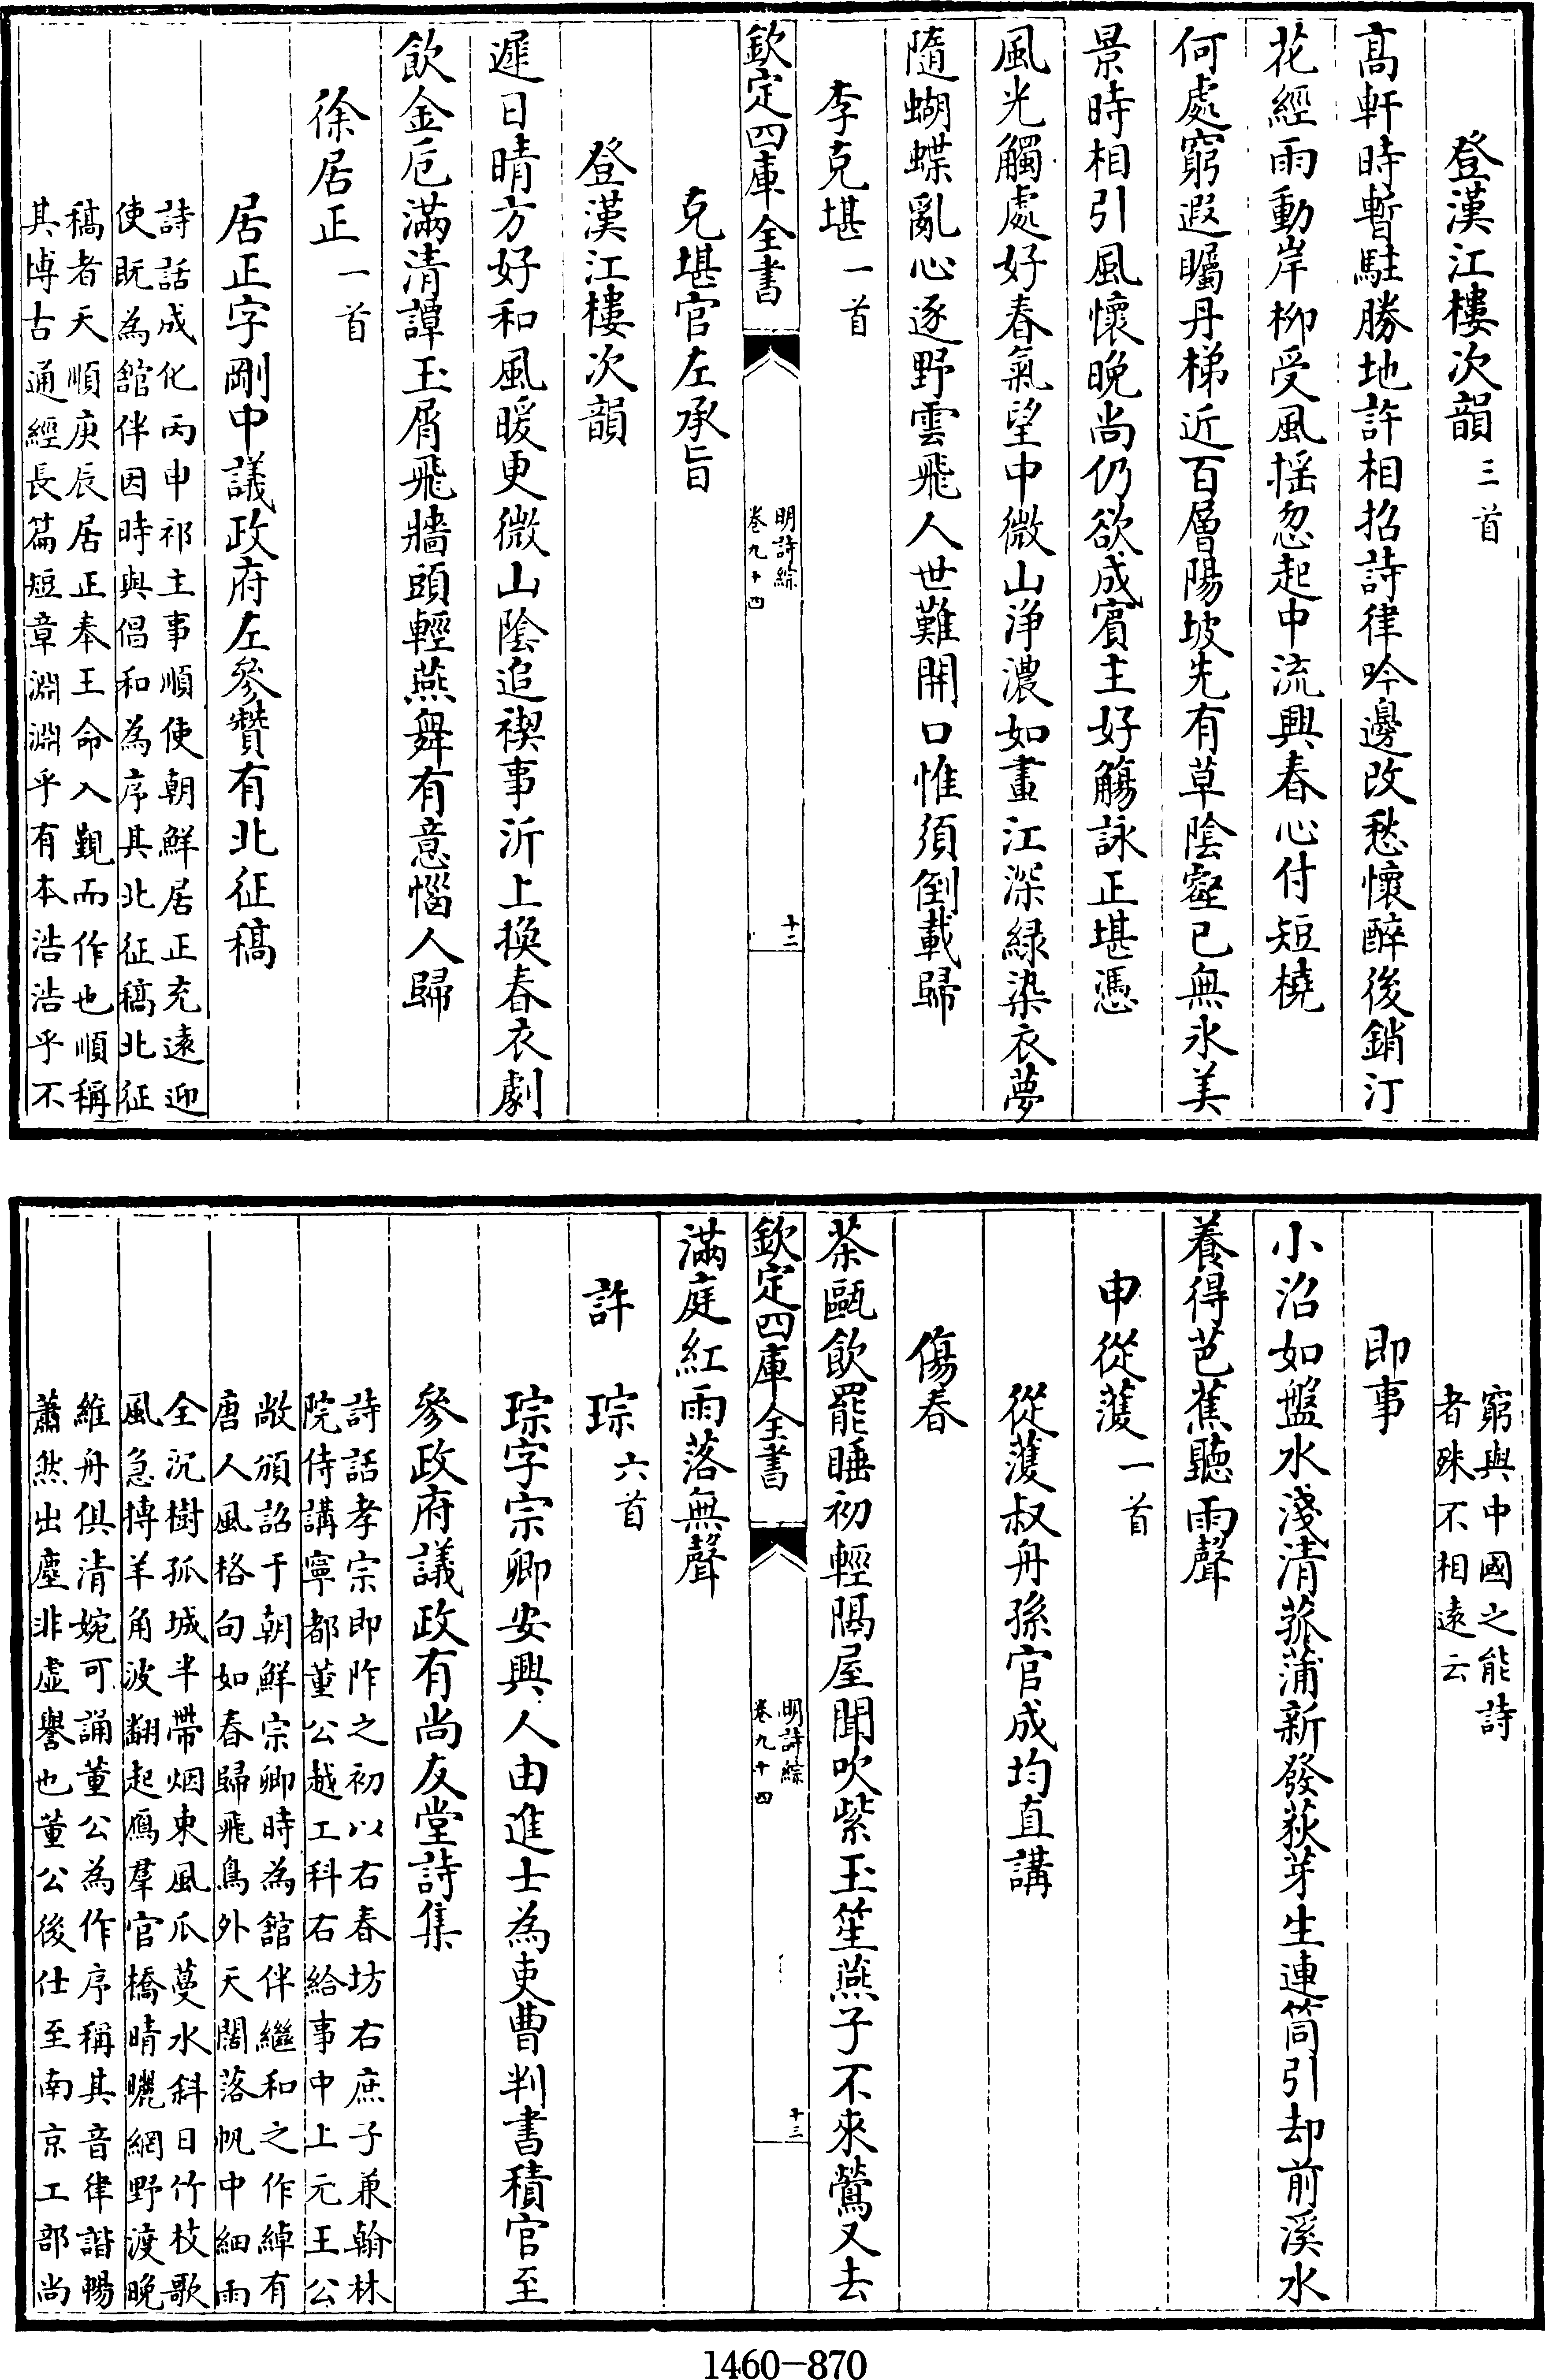 登漢江樓次韻三首
髙軒時暫駐勝地許相招詩律吟邊改愁懷醉後銷汀
花經雨動岸柳受風揺忽起中流興春心付短橈
何處窮遐矚丹梯近百層陽坡先有草陰壑已無氷美
景時相引風懷晚尚仍欲成賓主好觴詠正堪憑
風光觸處好春氣望中微山淨濃如畫江深緑染衣夢
隨蝴蝶亂心逐野雲飛人世難開口惟須倒載歸
李克堪一首
欽定四庫全書
明詩綜
卷九十四
十二
克堪官左承旨
登漢江樓次韻
遲日晴方好和風暖更微山陰追禊事沂上換春衣劇
飲金卮滿清譚玉屑飛牆頭輕燕舞有意惱人歸
徐居正一首
居正字剛中議政府左參贊有北征稿
詩話成化丙申祁主事順使朝鮮居正充遠迎
使既為舘伴因時與倡和為序其北征稿北征
稿者天順庚辰居正奉王命入覲而作也順稱
其博古通經長篇短章淵淵乎有本浩浩乎不
窮與中國之能詩
者殊不相遠云
即事
小沼如盤水淺清菰蒲新發荻芽生連筒引却前溪水
養得芭蕉聽雨聲
申從濩一首
從濩叔舟孫官成均直講
傷春
茶甌飲罷睡初輕隔屋聞吹紫玉笙燕子不來鶯又去
欽定四庫全書
明詩綜
卷九十四
十三
滿庭紅雨落無聲
許琮六首
琮字宗卿安興人由進士為吏曹判書積官至
參政府議政有尚友堂詩集
詩話孝宗即阼之初以右春坊右庶子兼翰林
院侍講寧都董公越工科右給事中上元王公
敞頒詔于朝鮮宗卿時為舘伴繼和之作綽有
唐人風格句如春歸飛鳥外天闊落帆中細雨
全沉樹孤城半帶烟東風爪蔓水斜日竹枝歌
風急摶羊角波翻起鴈羣官橋晴曬網野渡晚
維舟俱清婉可誦董公為作序稱其音律諧暢
蕭然出塵非虛譽也董公後仕至南京工部尚
1460-870